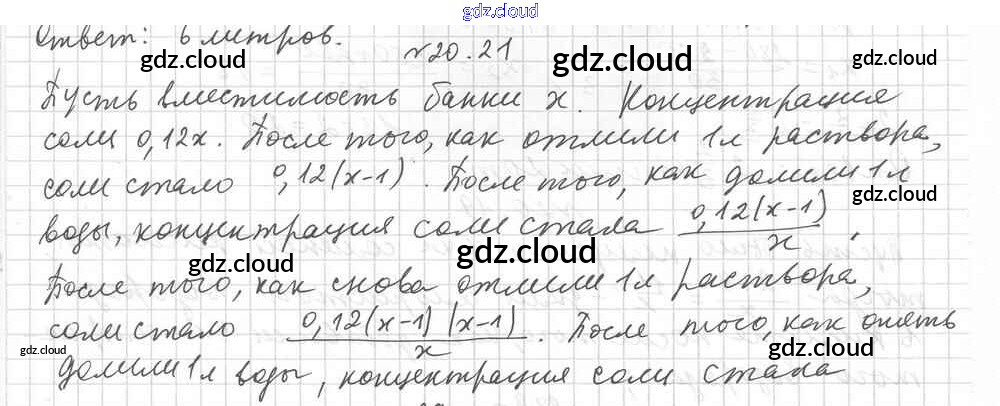 gdz.cloud
Ответ: 6 метров.
№20.21
Пусть вместимость банки x. Концентрация
соли 0,12x. После того, как отлили 1л раствора,
соли стало 0,12(x-1). После того, как долили 1л
воды, концентрация соли стала 0,12(x-1)/x.
После того, как снова отлили 1л раствора,
соли стало 0,12(x-1)(x-1)/x. После того, как опять
долили 1л воды, концентрация соли стала
gdz.cloud
gdz.cloud
gdz.cloud
gdz.cloud
gdz.cloud
gdz.cloud
gdz.cloud
gdz.cloud
gdz.cloud
gdz.cloud